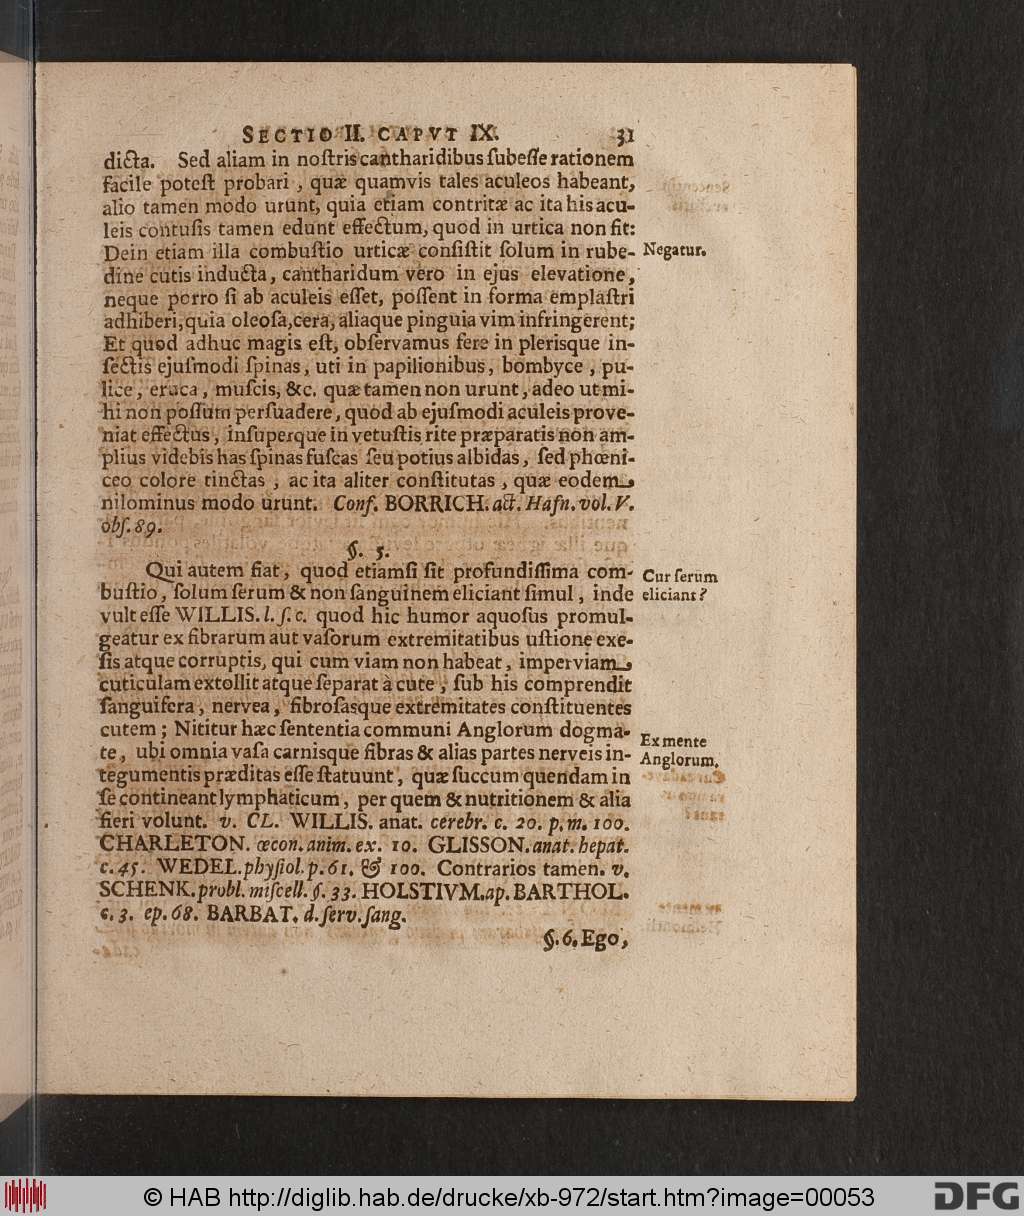 SECTIO II. CAPVT IX. 31
dicta. Sed aliam in noſtris cantharidibus ſubeſſe rationem
facile poteſt probari, quæ quamvis tales aculeos habeant,
alio tamen modo urunt, quia etiam contritæ ac ita his acu-
leis contuſis tamen edunt effectum, quod in urtica non fit:
Dein etiam illa combuſtio urticæ conſiſtit ſolum in rube-
Negatur.
dine cutis inducta, cantharidum vero in ejus elevatione,
neque porro ſi ab aculeis eſſet, poſſent in forma emplaſtri
adhiberi, quia oleoſa, cera, aliaque pinguia vim infringerent;
Et quod adhuc magis eſt, obſervamus fere in plerisque in-
ſectis ejuſmodi ſpinas, uti in papilionibus, bombyce, pu-
lice, eruca, muſcis, &c. quæ tamen non urunt, adeo ut mi-
hi non poſſum perſuadere, quod ab ejuſmodi aculeis prove-
niat effectus, inſuperque in vetuſtis rite præparatis non am-
plius videbis has ſpinas fuſcas ſeu potius albidas, ſed phœni-
ceo colore tinctas, ac ita aliter conſtitutas, quæ eodem
nilominus modo urunt. Conf. BORRICH. act. Hafn. vol. V.
obſ. 89.
§. 5.
Qui autem fiat, quod etiamſi ſit profundiſſima com-
Cur ſerum
buſtio, ſolum ſerum & non ſanguinem eliciant ſimul, inde
eliciant?
vult eſſe WILLIS. l. ſ. c. quod hic humor aquoſus promul-
geatur ex fibrarum aut vaſorum extremitatibus uſtione exe-
ſis atque corruptis, qui cum viam non habeat, imperviam
cuticulam extollit atque ſeparat à cute, ſub his comprendit
ſanguifera, nervea, fibroſasque extremitates conſtituentes
cutem; Nititur hæc ſententia communi Anglorum dogma-
Ex mente
te, ubi omnia vaſa carnisque fibras & alias partes nerveis in-
Anglorum.
tegumentis præditas eſſe ſtatuunt, quæ ſuccum quendam in
ſe contineant lymphaticum, per quem & nutritionem & alia
fieri volunt. v. CL. WILLIS. anat. cerebr. c. 20. p. m. 100.
CHARLETON. œcon. anim. ex. 10. GLISSON. anat. hepat.
c. 45. WEDEL. phyſiol. p. 61. & 100. Contrarios tamen. v.
SCHENK. probl. miſcell. §. 33. HOLSTIVM. ap. BARTHOL.
c. 3. ep. 68. BARBAT. d. ſerv. ſang.
§. 6. Ego,
© HAB http://diglib.hab.de/drucke/xb-972/start.htm?image=00053
DFG